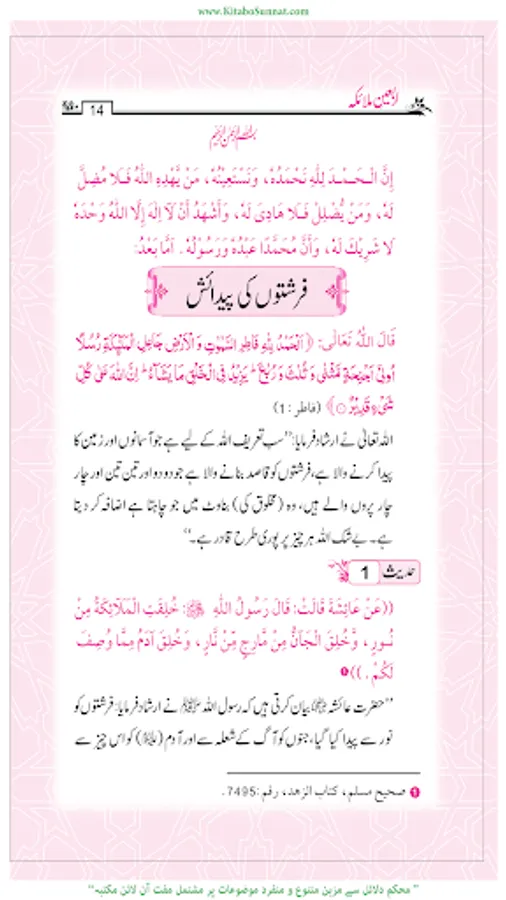 www.KitaboSunnat.com
اربعین ملائکہ
14
بسم اللہ الرحمن الرحیم
إِنَّ الْحَمْدَ لِلّٰهِ نَحْمَدُهٗ، وَنَسْتَعِيْنُهٗ، مَنْ يَّهْدِهِ اللّٰهُ فَلَا مُضِلَّ
لَهٗ، وَمَنْ يُّضْلِلْ فَلَا هَادِىَ لَهٗ، وَأَشْهَدُ أَنْ لَّا إِلٰهَ إِلَّا اللّٰهُ وَحْدَهٗ
لَا شَرِيْكَ لَهٗ، وَأَنَّ مُحَمَّدًا عَبْدُهٗ وَرَسُوْلُهٗ. أَمَّا بَعْدُ:
فرشتوں کی پیدائش
قَالَ اللّٰهُ تَعَالٰى: ﴿اَلْحَمْدُ لِلّٰهِ فَاطِرِ السَّمٰوٰتِ وَ الْاَرْضِ جَاعِلِ الْمَلٰٓىِٕكَةِ رُسُلًا
اُولِیْۤ اَجْنِحَةٍ مَّثْنٰى وَ ثُلٰثَ وَ رُبٰعَ ؕ یَزِیْدُ فِی الْخَلْقِ مَا یَشَآءُ ؕ اِنَّ اللّٰهَ عَلٰى كُلِّ
شَیْءٍ قَدِیْرٌ ۝﴾ (فاطر : 1)
اللہ تعالیٰ نے ارشاد فرمایا: ’’سب تعریف اللہ کے لیے ہے جو آسمانوں اور زمین کا
پیدا کرنے والا ہے، فرشتوں کو قاصد بنانے والا ہے جو دو دو اور تین تین اور چار
چار پروں والے ہیں، وہ (مخلوق کی) بناوٹ میں جو چاہتا ہے اضافہ کر دیتا
ہے۔ بے شک اللہ ہر چیز پر پوری طرح قادر ہے۔‘‘
حدیث 1
((عَنْ عَائِشَةَ قَالَتْ: قَالَ رَسُوْلُ اللّٰهِ ﷺ: خُلِقَتِ الْمَلَائِكَةُ مِنْ
نُوْرٍ، وَّخُلِقَ الْجَانُّ مِنْ مَّارِجٍ مِّنْ نَّارٍ، وَخُلِقَ آدَمُ مِمَّا وُصِفَ
لَكُمْ.))❶
’’حضرت عائشہ رضی اللہ عنہا بیان کرتی ہیں کہ رسول اللہ ﷺ نے ارشاد فرمایا: فرشتوں کو
نور سے پیدا کیا گیا، جنوں کو آگ کے شعلہ سے اور آدم (علیہ السلام) کو اس چیز سے
❶ صحیح مسلم، کتاب الزهد، رقم:7495.
"محکم دلائل سے مزین متنوع و منفرد موضوعات پر مشتمل مفت آن لائن مکتبہ"